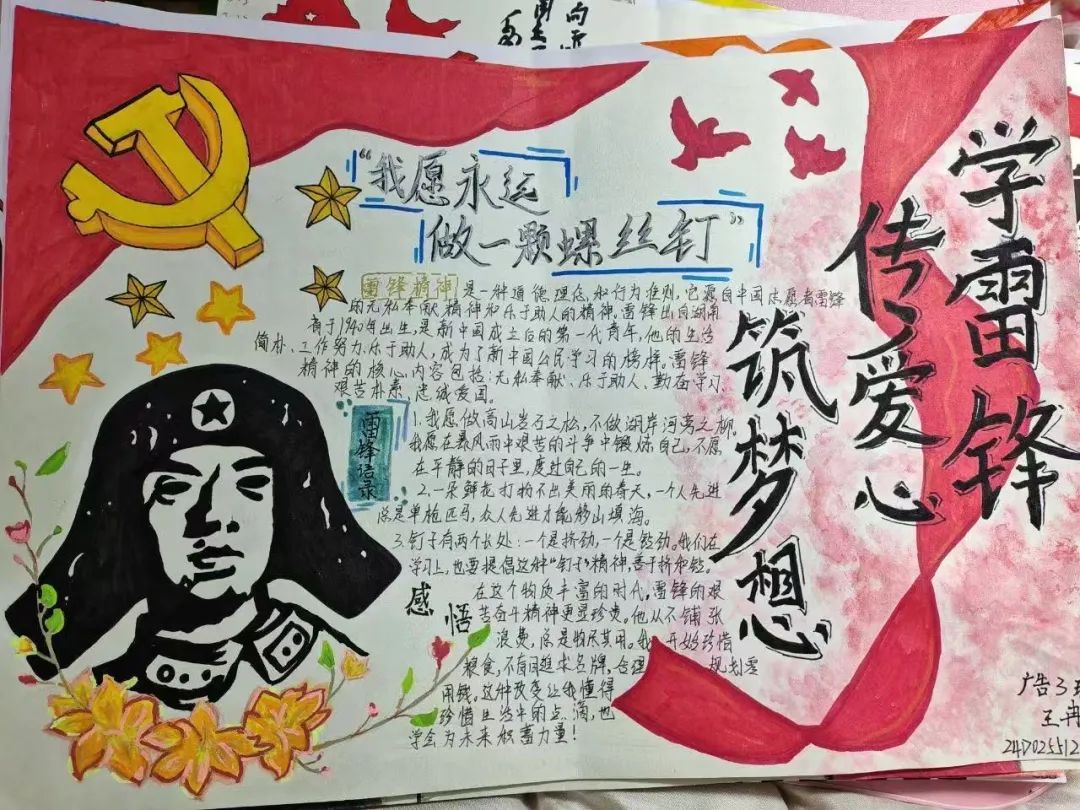 学雷锋
传爱心
筑梦想
“我愿永远
做一颗螺丝钉”
雷锋精神 是一种道德理念和行为准则，它源自中国志愿者雷锋
的无私奉献精神和乐于助人的精神。雷锋出自湖南
省于1940年出生，是新中国成立后的第一代青年，他的生活
简朴、工作努力、乐于助人，成为了新中国公民学习的榜样。雷锋
精神的核心内容包括：无私奉献、乐于助人、勤奋学习、
艰苦朴素、忠诚爱国。
雷锋语录
1.我愿做高山岩石之松，不做湖岸河旁之柳，
我愿在暴风雨中艰苦的斗争中锻炼自己，不愿
在平静的日子里，度过自己的一生。
2.一朵鲜花打扮不出美丽的春天，一个人先进
总是单枪匹马，众人先进才能移山填海。
3.钉子有两个长处：一个是挤劲，一个是钻劲。我们在
学习上，也要提倡这种“钉子”精神，善于挤和钻。
感悟
在这个物质丰富的时代，雷锋的艰
苦奋斗精神更显珍贵。他从不铺张
浪费，总是物尽其用。我 开始珍惜
粮食，不盲目追求名牌，合理 规划零
用钱。这种改变让我懂得
珍惜生活中的点 滴，也
学会为未来积蓄力量！
广告3
王冉
24D025512